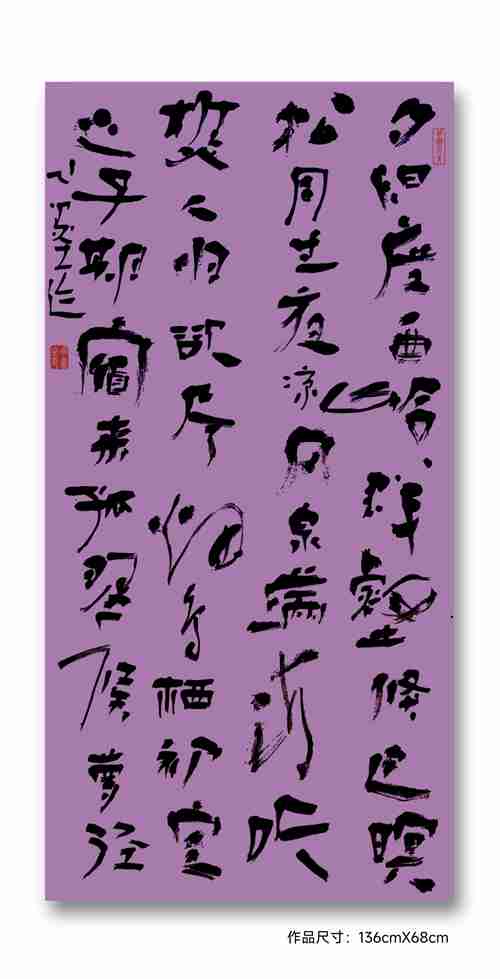 夕阳度西岭群壑倏已暝
松月生夜凉风泉满清听
樵人归欲尽烟鸟栖初定
之子期宿来孤琴候萝径
作品尺寸：136cmX68cm